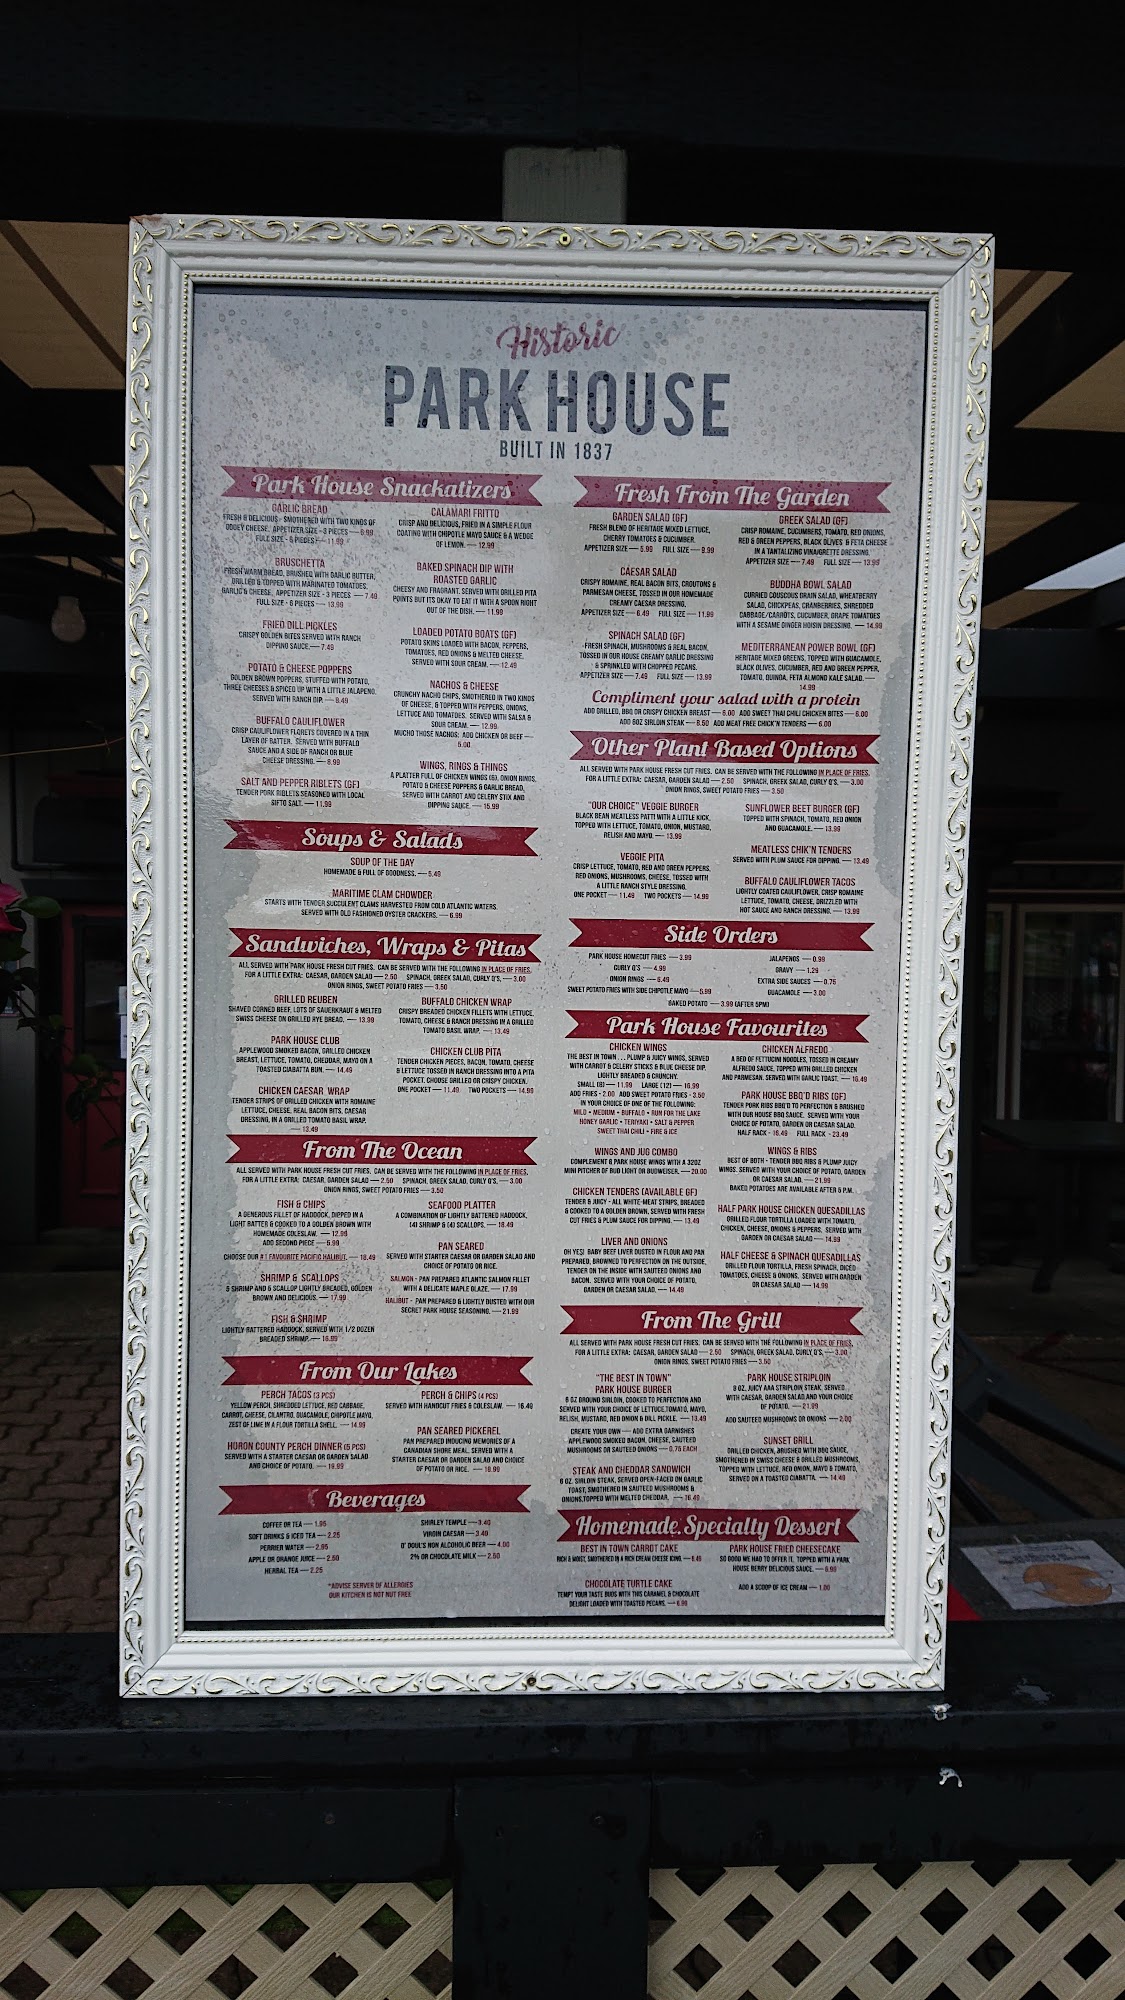 Historic
PARK HOUSE
BUILT IN 1837
Park House Snackatizers
GARLIC BREAD
FRESH & DELICIOUS - SMOTHERED WITH TWO KINDS OF
GOOEY CHEESE. APPETIZER SIZE - 3 PIECES — 6.99
FULL SIZE - 6 PIECES — 11.99
BRUSCHETTA
FRESH WARM BREAD, BRUSHED WITH GARLIC BUTTER,
GRILLED & TOPPED WITH MARINATED TOMATOES,
GARLIC & CHEESE. APPETIZER SIZE - 3 PIECES — 7.49
FULL SIZE - 6 PIECES — 13.99
FRIED DILL PICKLES
CRISPY GOLDEN BITES SERVED WITH RANCH
DIPPING SAUCE — 7.49
POTATO & CHEESE POPPERS
GOLDEN BROWN POPPERS, STUFFED WITH POTATO,
THREE CHEESES & SPICED UP WITH A LITTLE JALAPENO.
SERVED WITH RANCH DIP. — 8.49
BUFFALO CAULIFLOWER
CRISP CAULIFLOWER FLORETS COVERED IN A THIN
LAYER OF BATTER. SERVED WITH BUFFALO
SAUCE AND A SIDE OF RANCH OR BLUE
CHEESE DRESSING. — 8.99
SALT AND PEPPER RIBLETS (GF)
TENDER PORK RIBLETS SEASONED WITH LOCAL
SIFTO SALT. — 11.99
CALAMARI FRITTO
CRISP AND DELICIOUS, FRIED IN A SIMPLE FLOUR
COATING WITH CHIPOTLE MAYO SAUCE & A WEDGE
OF LEMON. — 12.99
BAKED SPINACH DIP WITH
ROASTED GARLIC
CHEESY AND FRAGRANT. SERVED WITH GRILLED PITA
POINTS BUT IT'S OKAY TO EAT IT WITH A SPOON RIGHT
OUT OF THE DISH. — 11.99
LOADED POTATO BOATS (GF)
POTATO SKINS LOADED WITH BACON, PEPPERS,
TOMATOES, RED ONIONS & MELTED CHEESE.
SERVED WITH SOUR CREAM. — 12.49
NACHOS & CHEESE
CRUNCHY NACHO CHIPS, SMOTHERED IN TWO KINDS
OF CHEESE, & TOPPED WITH PEPPERS, ONIONS,
LETTUCE AND TOMATOES. SERVED WITH SALSA &
SOUR CREAM. — 12.99
MUCHO THOSE NACHOS: ADD CHICKEN OR BEEF —
5.00
WINGS, RINGS & THINGS
A PLATTER FULL OF CHICKEN WINGS (6), ONION RINGS,
POTATO & CHEESE POPPERS & GARLIC BREAD,
SERVED WITH CARROT AND CELERY STIX AND
DIPPING SAUCE. — 15.99
Soups & Salads
SOUP OF THE DAY
HOMEMADE & FULL OF GOODNESS. — 5.49
MARITIME CLAM CHOWDER
STARTS WITH TENDER SUCCULENT CLAMS HARVESTED FROM COLD ATLANTIC WATERS.
SERVED WITH OLD FASHIONED OYSTER CRACKERS. — 6.99
Sandwiches, Wraps & Pitas
ALL SERVED WITH PARK HOUSE FRESH CUT FRIES. CAN BE SERVED WITH THE FOLLOWING IN PLACE OF FRIES,
FOR A LITTLE EXTRA: CAESAR, GARDEN SALAD — 2.50 SPINACH, GREEK SALAD, CURLY Q'S, — 3.00
ONION RINGS, SWEET POTATO FRIES — 3.50
GRILLED REUBEN
SHAVED CORNED BEEF, LOTS OF SAUERKRAUT & MELTED
SWISS CHEESE ON GRILLED RYE BREAD. — 13.99
PARK HOUSE CLUB
APPLEWOOD SMOKED BACON, GRILLED CHICKEN
BREAST, LETTUCE, TOMATO, CHEDDAR, MAYO ON A
TOASTED CIABATTA BUN. — 14.49
CHICKEN CAESAR WRAP
TENDER STRIPS OF GRILLED CHICKEN WITH ROMAINE
LETTUCE, CHEESE, REAL BACON BITS, CAESAR
DRESSING, IN A GRILLED TOMATO BASIL WRAP.
— 13.49
BUFFALO CHICKEN WRAP
CRISPY BREADED CHICKEN FILLETS WITH LETTUCE,
TOMATO, CHEESE & RANCH DRESSING IN A GRILLED
TOMATO BASIL WRAP. — 13.49
CHICKEN CLUB PITA
TENDER CHICKEN PIECES, BACON, TOMATO, CHEESE
& LETTUCE TOSSED IN RANCH DRESSING INTO A PITA
POCKET, CHOOSE GRILLED OR CRISPY CHICKEN.
ONE POCKET — 11.49 TWO POCKETS — 14.99
From The Ocean
ALL SERVED WITH PARK HOUSE FRESH CUT FRIES. CAN BE SERVED WITH THE FOLLOWING IN PLACE OF FRIES,
FOR A LITTLE EXTRA: CAESAR, GARDEN SALAD — 2.50 SPINACH, GREEK SALAD, CURLY Q'S, — 3.00
ONION RINGS, SWEET POTATO FRIES — 3.50
FISH & CHIPS
A GENEROUS FILLET OF HADDOCK, DIPPED IN A
LIGHT BATTER & COOKED TO A GOLDEN BROWN WITH
HOMEMADE COLESLAW. — 12.99
ADD SECOND PIECE — 5.99
CHOOSE OUR #1 FAVOURITE PACIFIC HALIBUT. — 18.49
SHRIMP & SCALLOPS
5 SHRIMP AND 5 SCALLOP LIGHTLY BREADED, GOLDEN
BROWN AND DELICIOUS. — 17.99
FISH & SHRIMP
LIGHTLY BATTERED HADDOCK, SERVED WITH 1/2 DOZEN
BREADED SHRIMP. — 16.99
SEAFOOD PLATTER
A COMBINATION OF LIGHTLY BATTERED HADDOCK,
(4) SHRIMP & (4) SCALLOPS. — 18.49
PAN SEARED
SERVED WITH STARTER CAESAR OR GARDEN SALAD AND
CHOICE OF POTATO OR RICE.
SALMON - PAN PREPARED ATLANTIC SALMON FILLET
WITH A DELICATE MAPLE GLAZE. — 17.99
HALIBUT - PAN PREPARED & LIGHTLY DUSTED WITH OUR
SECRET PARK HOUSE SEASONING. — 21.99
From Our Lakes
PERCH TACOS (3 PCS)
YELLOW PERCH, SHREDDED LETTUCE, RED CABBAGE,
CARROT, CHEESE, CILANTRO, GUACAMOLE, CHIPOTLE MAYO,
ZEST OF LIME IN A FLOUR TORTILLA SHELL. — 14.99
HURON COUNTY PERCH DINNER (5 PCS)
SERVED WITH A STARTER CAESAR OR GARDEN SALAD
AND CHOICE OF POTATO. — 19.99
PERCH & CHIPS (4 PCS)
SERVED WITH HANDCUT FRIES & COLESLAW. — 16.49
PAN SEARED PICKEREL
PAN PREPARED INDUCING MEMORIES OF A
CANADIAN SHORE MEAL. SERVED WITH A
STARTER CAESAR OR GARDEN SALAD AND CHOICE
OF POTATO OR RICE. — 18.99
Beverages
COFFEE OR TEA — 1.95
SOFT DRINKS & ICED TEA — 2.25
PERRIER WATER — 2.95
APPLE OR ORANGE JUICE — 2.50
HERBAL TEA — 2.25
SHIRLEY TEMPLE — 3.40
VIRGIN CAESAR — 3.40
O' DOUL'S NON ALCOHOLIC BEER — 4.00
2% OR CHOCOLATE MILK — 2.50
*ADVISE SERVER OF ALLERGIES
OUR KITCHEN IS NOT NUT FREE
Fresh From The Garden
GARDEN SALAD (GF)
FRESH BLEND OF HERITAGE MIXED LETTUCE,
CHERRY TOMATOES & CUCUMBER.
APPETIZER SIZE — 5.99 FULL SIZE — 9.99
CAESAR SALAD
CRISPY ROMAINE, REAL BACON BITS, CROUTONS &
PARMESAN CHEESE, TOSSED IN OUR HOMEMADE
CREAMY CAESAR DRESSING.
APPETIZER SIZE — 6.49 FULL SIZE — 11.99
SPINACH SALAD (GF)
FRESH SPINACH, MUSHROOMS & REAL BACON,
TOSSED IN OUR HOUSE CREAMY GARLIC DRESSING
& SPRINKLED WITH CHOPPED PECANS.
APPETIZER SIZE — 7.49 FULL SIZE — 13.99
GREEK SALAD (GF)
CRISP ROMAINE, CUCUMBERS, TOMATO, RED ONIONS,
RED & GREEN PEPPERS, BLACK OLIVES & FETA CHEESE
IN A TANTALIZING VINAIGRETTE DRESSING.
APPETIZER SIZE — 7.49 FULL SIZE — 13.99
BUDDHA BOWL SALAD
CURRIED COUSCOUS GRAIN SALAD, WHEATBERRY
SALAD, CHICKPEAS, CRANBERRIES, SHREDDED
CABBAGE/CARROTS, CUCUMBER, GRAPE TOMATOES
WITH A SESAME GINGER HOISIN DRESSING. — 14.99
MEDITERRANEAN POWER BOWL (GF)
HERITAGE MIXED GREENS, TOPPED WITH GUACAMOLE,
BLACK OLIVES, CUCUMBER, RED AND GREEN PEPPER,
TOMATO, QUINOA, FETA ALMOND KALE SALAD. —
14.99
Compliment your salad with a protein
ADD GRILLED, BBQ OR CRISPY CHICKEN BREAST — 6.00 ADD SWEET THAI CHILI CHICKEN BITES — 6.00
ADD 6OZ SIRLOIN STEAK — 8.50 ADD MEAT FREE CHICK'N TENDERS — 6.00
Other Plant Based Options
ALL SERVED WITH PARK HOUSE FRESH CUT FRIES. CAN BE SERVED WITH THE FOLLOWING IN PLACE OF FRIES,
FOR A LITTLE EXTRA: CAESAR, GARDEN SALAD — 2.50 SPINACH, GREEK SALAD, CURLY Q'S, — 3.00
ONION RINGS, SWEET POTATO FRIES — 3.50
"OUR CHOICE" VEGGIE BURGER
BLACK BEAN MEATLESS PATTI WITH A LITTLE KICK,
TOPPED WITH LETTUCE, TOMATO, ONION, MUSTARD,
RELISH AND MAYO. — 13.99
VEGGIE PITA
CRISP LETTUCE, TOMATO, RED AND GREEN PEPPERS,
RED ONIONS, MUSHROOMS, CHEESE, TOSSED WITH
A LITTLE RANCH STYLE DRESSING.
ONE POCKET — 11.49 TWO POCKETS — 14.99
SUNFLOWER BEET BURGER (GF)
TOPPED WITH SPINACH, TOMATO, RED ONION
AND GUACAMOLE. — 13.99
MEATLESS CHIK'N TENDERS
SERVED WITH PLUM SAUCE FOR DIPPING. — 13.49
BUFFALO CAULIFLOWER TACOS
LIGHTLY COATED CAULIFLOWER, CRISP ROMAINE
LETTUCE, TOMATO, CHEESE, DRIZZLED WITH
HOT SAUCE AND RANCH DRESSING. — 13.99
Side Orders
PARK HOUSE HOMECUT FRIES — 3.99
CURLY Q'S — 4.99
ONION RINGS — 6.49
SWEET POTATO FRIES WITH SIDE CHIPOTLE MAYO — 5.99
JALAPENOS — 0.99
GRAVY — 1.29
EXTRA SIDE SAUCES — 0.75
GUACAMOLE — 3.00
BAKED POTATO — 3.99 (AFTER 5PM)
Park House Favourites
CHICKEN WINGS
THE BEST IN TOWN . . . PLUMP & JUICY WINGS, SERVED
WITH CARROT & CELERY STICKS & BLUE CHEESE DIP.
LIGHTLY BREADED & CRUNCHY.
SMALL (8) — 11.99 LARGE (12) — 16.99
ADD FRIES - 2.00 ADD SWEET POTATO FRIES - 3.50
IN YOUR CHOICE OF ONE OF THE FOLLOWING:
MILD • MEDIUM • BUFFALO • RUN FOR THE LAKE
HONEY GARLIC • TERIYAKI • SALT & PEPPER
SWEET THAI CHILI • FIRE & ICE
WINGS AND JUG COMBO
COMPLEMENT 8 PARK HOUSE WINGS WITH A 32OZ
MINI PITCHER OF BUD LIGHT OR BUDWEISER. — 20.00
CHICKEN TENDERS (AVAILABLE GF)
TENDER & JUICY - ALL WHITE-MEAT STRIPS, BREADED
& COOKED TO A GOLDEN BROWN, SERVED WITH FRESH
CUT FRIES & PLUM SAUCE FOR DIPPING. — 13.49
LIVER AND ONIONS
OH YES! BABY BEEF LIVER DUSTED IN FLOUR AND PAN
PREPARED, BROWNED TO PERFECTION ON THE OUTSIDE,
TENDER ON THE INSIDE WITH SAUTEED ONIONS AND
BACON. SERVED WITH YOUR CHOICE OF POTATO,
GARDEN OR CAESAR SALAD. — 14.49
CHICKEN ALFREDO
A BED OF FETTUCINI NOODLES, TOSSED IN CREAMY
ALFREDO SAUCE, TOPPED WITH GRILLED CHICKEN
AND PARMESAN. SERVED WITH GARLIC TOAST. — 16.49
PARK HOUSE BBQ'D RIBS (GF)
TENDER PORK RIBS BBQ'D TO PERFECTION & BRUSHED
WITH OUR HOUSE BBQ SAUCE. SERVED WITH YOUR
CHOICE OF POTATO, GARDEN OR CAESAR SALAD.
HALF RACK - 16.49 FULL RACK - 23.49
WINGS & RIBS
BEST OF BOTH - TENDER BBQ RIBS & PLUMP JUICY
WINGS. SERVED WITH YOUR CHOICE OF POTATO, GARDEN
OR CAESAR SALAD. — 21.99
BAKED POTATOES ARE AVAILABLE AFTER 5 P.M.
HALF PARK HOUSE CHICKEN QUESADILLAS
GRILLED FLOUR TORTILLA LOADED WITH TOMATO,
CHICKEN, CHEESE, ONIONS & PEPPERS. SERVED WITH
GARDEN OR CAESAR SALAD — 14.99
HALF CHEESE & SPINACH QUESADILLAS
GRILLED FLOUR TORTILLA, FRESH SPINACH, DICED
TOMATOES, CHEESE & ONIONS. SERVED WITH GARDEN
OR CAESAR SALAD — 14.49
From The Grill
ALL SERVED WITH PARK HOUSE FRESH CUT FRIES. CAN BE SERVED WITH THE FOLLOWING IN PLACE OF FRIES,
FOR A LITTLE EXTRA: CAESAR, GARDEN SALAD — 2.50 SPINACH, GREEK SALAD, CURLY Q'S, — 3.00
ONION RINGS, SWEET POTATO FRIES — 3.50
"THE BEST IN TOWN"
PARK HOUSE BURGER
6 OZ GROUND SIRLOIN, COOKED TO PERFECTION AND
SERVED WITH YOUR CHOICE OF LETTUCE,TOMATO, MAYO,
RELISH, MUSTARD, RED ONION & DILL PICKLE. — 13.49
CREATE YOUR OWN — ADD EXTRA GARNISHES
APPLEWOOD SMOKED BACON, CHEESE, SAUTEED
MUSHROOMS OR SAUTEED ONIONS — 0.75 EACH
STEAK AND CHEDDAR SANDWICH
6 OZ. SIRLOIN STEAK, SERVED OPEN-FACED ON GARLIC
TOAST, SMOTHERED IN SAUTEED MUSHROOMS &
ONIONS,TOPPED WITH MELTED CHEDDAR. — 16.49
PARK HOUSE STRIPLOIN
8 OZ. JUICY AAA STRIPLOIN STEAK, SERVED
WITH CAESAR, GARDEN SALAD AND YOUR CHOICE
OF POTATO. — 21.99
ADD SAUTEED MUSHROOMS OR ONIONS — 2.00
SUNSET GRILL
GRILLED CHICKEN, BRUSHED WITH BBQ SAUCE,
SMOTHERED IN SWISS CHEESE & GRILLED MUSHROOMS,
TOPPED WITH LETTUCE, RED ONION, MAYO & TOMATO,
SERVED ON A TOASTED CIABATTA. — 14.49
Homemade Specialty Dessert
BEST IN TOWN CARROT CAKE
RICH & MOIST, SMOTHERED IN A RICH CREAM CHEESE ICING. — 6.49
CHOCOLATE TURTLE CAKE
TEMPT YOUR TASTE BUDS WITH THIS CARAMEL & CHOCOLATE
DELIGHT LOADED WITH TOASTED PECANS. — 6.99
PARK HOUSE FRIED CHEESECAKE
SO GOOD WE HAD TO OFFER IT. TOPPED WITH A PARK
HOUSE BERRY DELICIOUS SAUCE. — 6.99
ADD A SCOOP OF ICE CREAM — 1.00